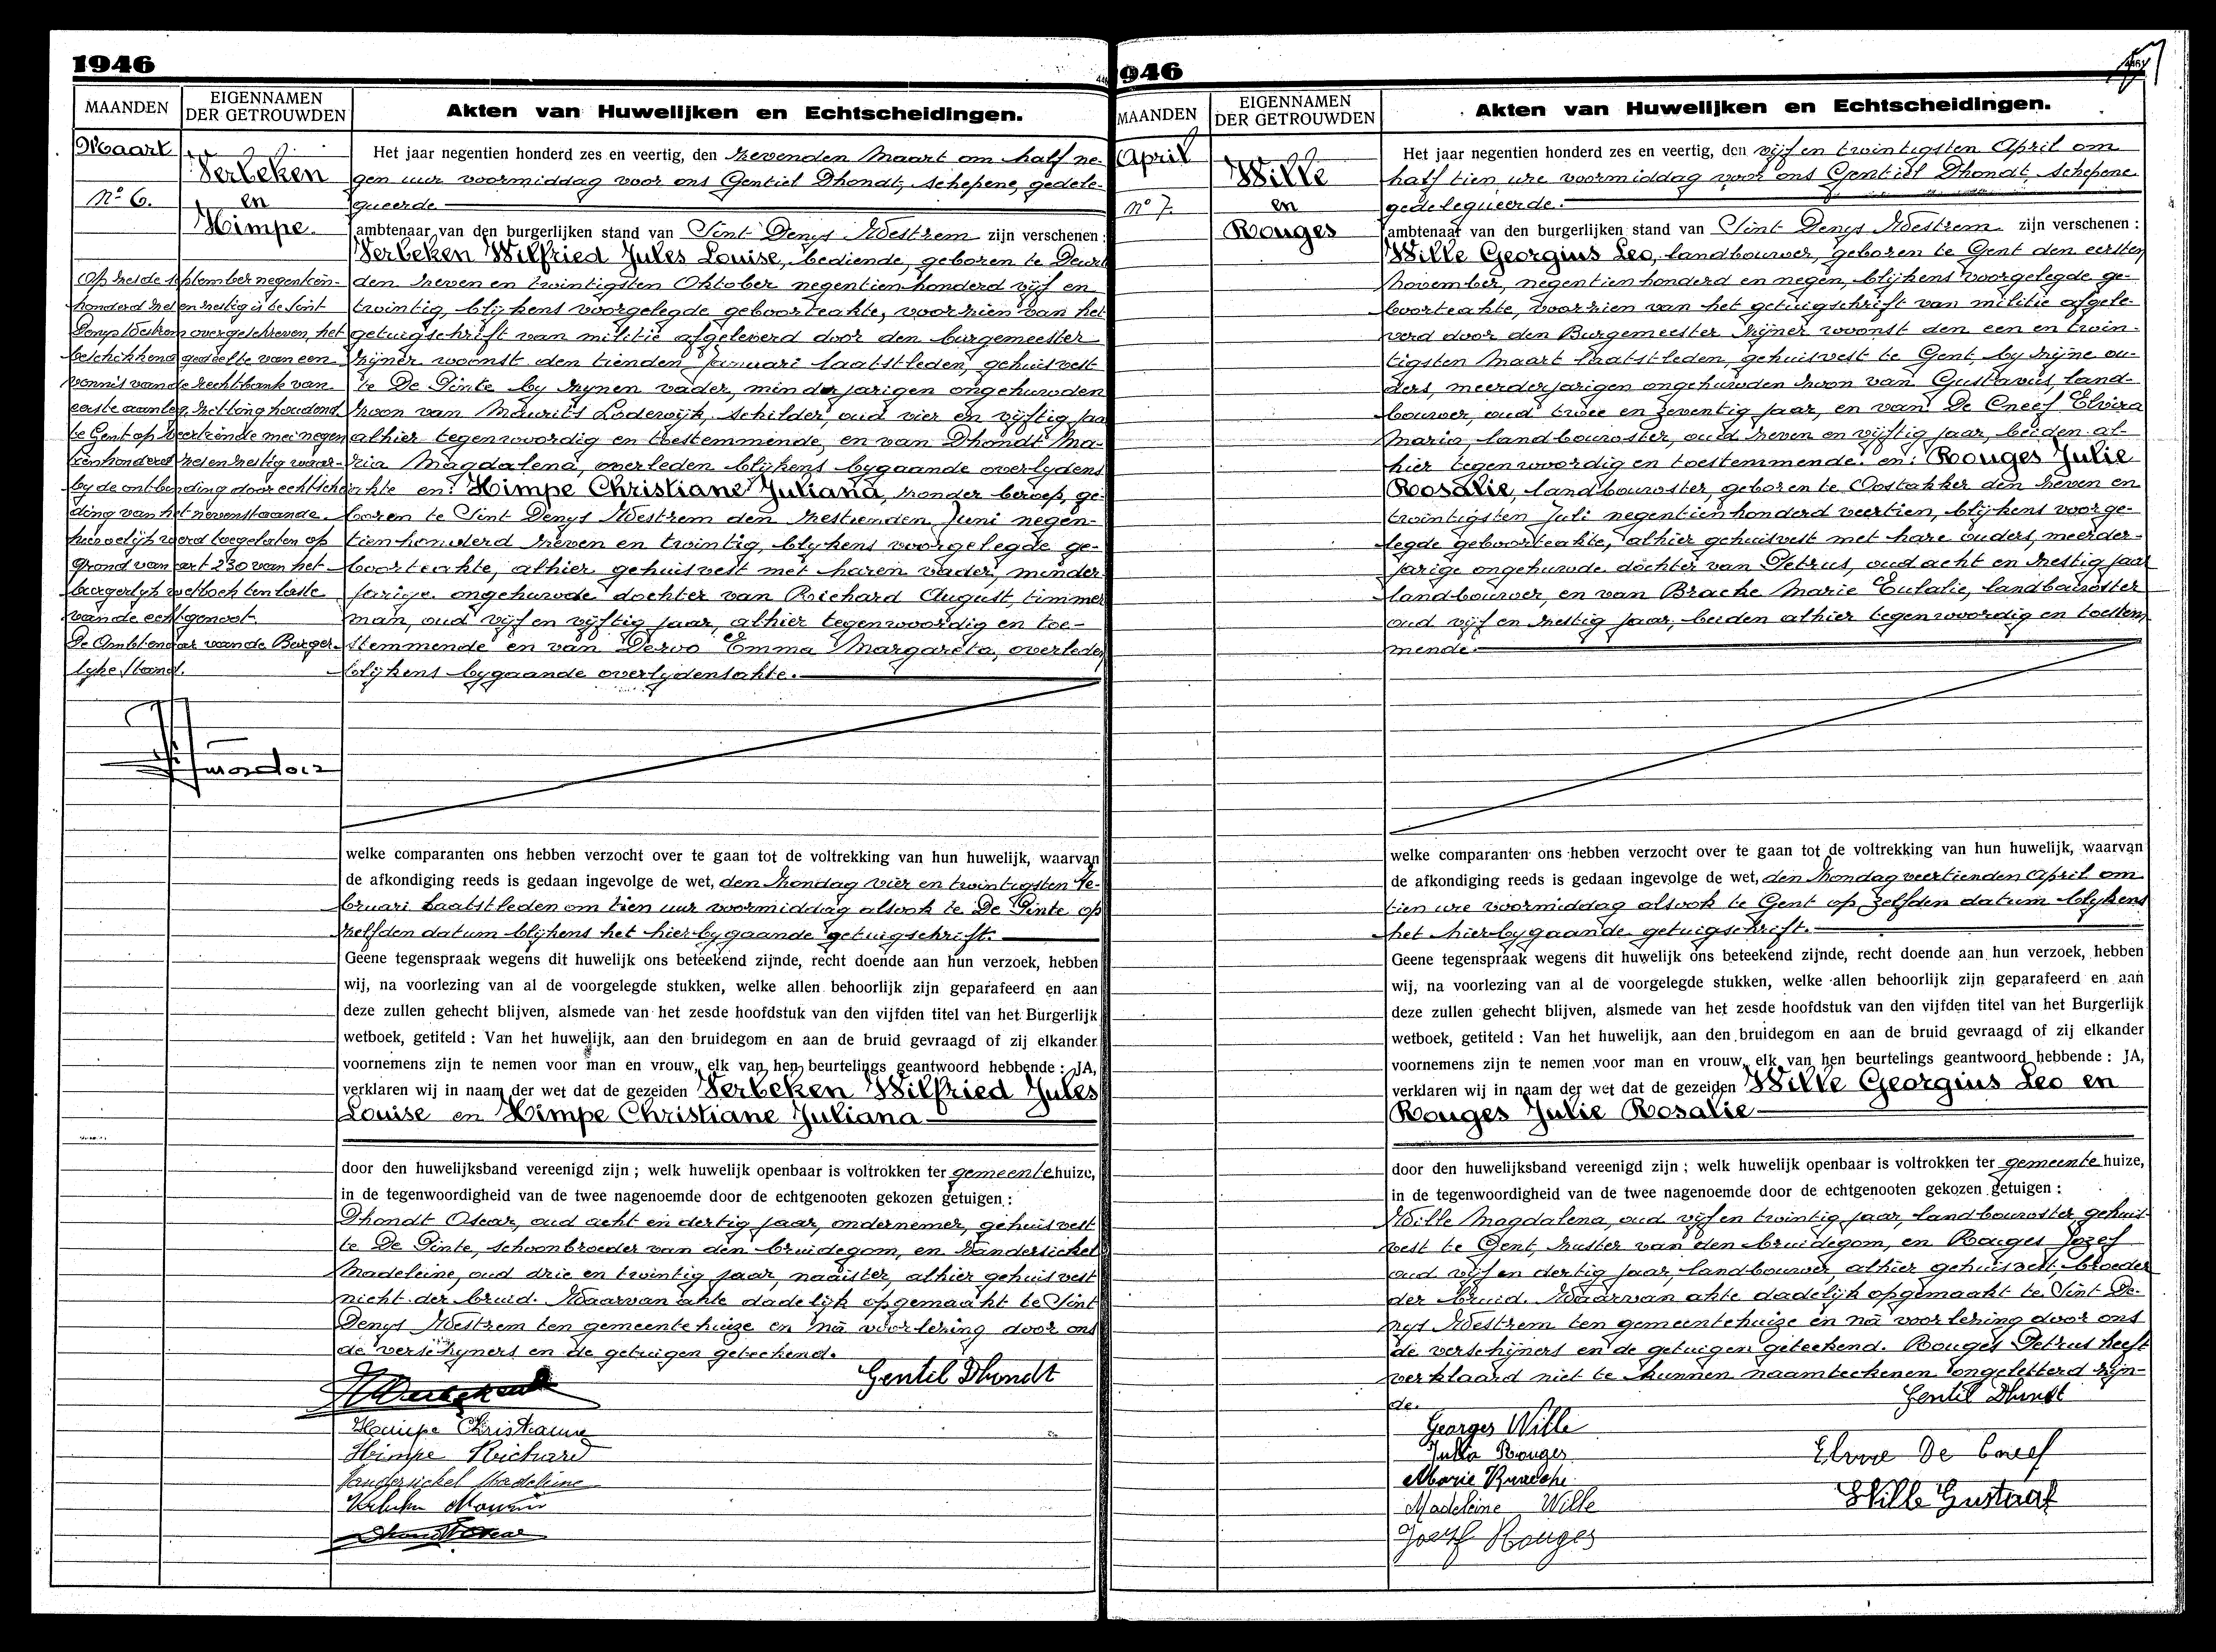 1946
MAANDEN
EIGENNAMEN
DER GETROUWDEN
Akten van Huwelijken en Echtscheidingen.
Maart
Verbeken
Nº 6.
en
Himpe
Op zes de september negentien-
honderd zes en zestig is te Sint
Denys Westrem overgeschreven, het
beschikkend gedeelte van een
vonnis van de rechtbank van
eerste aanleg, zitting houdend
te Gent op veertiende mei negen
tienhonderd zes en zestig waar-
by de ontbinding door echtschei
ding van het nevenstaande
huwelijk werd toegelaten op
grond van art 230 van het
burgerlyk wetboek ten laste
van de echtgenoot.
De Ambtenaar van de Burger-
lyke Stand.
Het jaar negentien honderd zes en veertig, den zevenden Maart om half ne-
gen uur voormiddag voor ons Gentiel Dhondt, schepene, gedele-
gueerde
ambtenaar van den burgerlijken stand van Sint Denys Westrem zijn verschenen:
Verbeken Wilfried Jules Louise, bediende, geboren te Deurle
den zeven en twintigsten Oktober negentienhonderd vijf en
twintig, blijkens voorgelegde geboorteakte, voorzien van het
getuigschrift van militie afgeleverd door den burgemeester
zijner woonst den tienden Januari laatstleden, gehuisvest
te De Pinte by zynen vader, minderjarigen ongehuwden
zoon van Maurits Lodewijk, schilder, oud vier en vijftig jaar
alhier tegenwoordig en toestemmende, en van Dhondt Ma-
ria Magdalena, overleden blijkens bygaande overlydens
akte en: Himpe Christiane Juliana, zonder beroep, ge-
boren te Sint Denys Westrem den zestienden Juni negen-
tienhonderd zeven en twintig, blykens voorgelegde ge-
boorteakte, alhier gehuisvest met haren vader, minder-
jarige ongehuwde dochter van Richard August, timmer
man, oud vijf en vijftig jaar, alhier tegenwoordig en toe-
stemmende en van Dewo Emma Margareta, overleden
blijkens bygaande overlydensakte.
welke comparanten ons hebben verzocht over te gaan tot de voltrekking van hun huwelijk, waarvan
de afkondiging reeds is gedaan ingevolge de wet, den Zondag vier en twintigsten Fe-
bruari laatstleden om tien uur voormiddag alsook te De Pinte op
zelfden datum blijkens het hierbygaande getuigschrift.
Geene tegenspraak wegens dit huwelijk ons beteekend zijnde, recht doende aan hun verzoek, hebben
wij, na voorlezing van al de voorgelegde stukken, welke allen behoorlijk zijn geparafeerd en aan
deze zullen gehecht blijven, alsmede van het zesde hoofdstuk van den vijfden titel van het Burgerlijk
wetboek, getiteld : Van het huwelijk, aan den bruidegom en aan de bruid gevraagd of zij elkander
voornemens zijn te nemen voor man en vrouw, elk van hen beurtelings geantwoord hebbende : JA,
verklaren wij in naam der wet dat de gezeiden Verbeken Wilfried Jules
Louise en Himpe Christiane Juliana
door den huwelijksband vereenigd zijn ; welk huwelijk openbaar is voltrokken ter gemeentehuize,
in de tegenwoordigheid van de twee nagenoemde door de echtgenooten gekozen getuigen :
Dhondt Oscar, oud acht en dertig jaar, ondernemer, gehuisvest
te De Pinte, schoonbroeder van den bruidegom, en Vandersickel
Madeleine, oud drie en twintig jaar, naaister, alhier gehuisvest
nicht der bruid. Waarvan akte dadelijk opgemaakt te Sint
Denys Westrem ten gemeentehuize en na voorlezing door ons
de verschyners en de getuigen geteekend.
Gentil Dhondt
Himpe Christiane
Himpe Richard
Vandersickel Madeleine
1946
MAANDEN
EIGENNAMEN
DER GETROUWDEN
Akten van Huwelijken en Echtscheidingen.
April
Wille
nº 7.
en
Rouges
Het jaar negentien honderd zes en veertig, den vijf en twintigsten April om
half tien ure voormiddag voor ons Gentiel Dhondt, Schepene
gedelegueerde.
ambtenaar van den burgerlijken stand van Sint Denys Westrem zijn verschenen :
Wille Georgius Leo, landbouwer, geboren te Gent den eersten
November, negentienhonderd en negen, blijkens voorgelegde ge-
boorteakte, voorzien van het getuigschrift van militie afgele-
verd door den Burgemeester zijner woonst den een en twin-
tigsten Maart laatstleden, gehuisvest te Gent, by zijne ou-
ders, meerderjarigen ongehuwden zoon van Gustavus, land-
bouwer, oud twee en zeventig jaar, en van De Cneef Elvira
Maria, landbouwster, oud zeven en vijftig jaar, beiden al-
hier tegenwoordig en toestemmende. en: Rouges Julie
Rosalie, landbouwster, geboren te Oostakker den zeven en
twintigsten Juli negentienhonderd veertien, blijkens voorge-
legde geboorteakte, alhier gehuisvest met hare ouders, meerder-
jarige ongehuwde dochter van Petrus, oud acht en zestig jaar
landbouwer, en van Bracke Marie Eulalie, landbouwster
oud vijf en zestig jaar, beiden alhier tegenwoordig en toestem-
mende.
welke comparanten ons hebben verzocht over te gaan tot de voltrekking van hun huwelijk, waarvan
de afkondiging reeds is gedaan ingevolge de wet, den Zondag veertienden April om
tien ure voormiddag alsook te Gent op zelfden datum blykens
het hierbygaande getuigschrift.
Geene tegenspraak wegens dit huwelijk ons beteekend zijnde, recht doende aan hun verzoek, hebben
wij, na voorlezing van al de voorgelegde stukken, welke allen behoorlijk zijn geparafeerd en aan
deze zullen gehecht blijven, alsmede van het zesde hoofdstuk van den vijfden titel van het Burgerlijk
wetboek, getiteld : Van het huwelijk, aan den bruidegom en aan de bruid gevraagd of zij elkander
voornemens zijn te nemen voor man en vrouw, elk van hen beurtelings geantwoord hebbende : JA,
verklaren wij in naam der wet dat de gezeiden Wille Georgius Leo en
Rouges Julie Rosalie
door den huwelijksband vereenigd zijn ; welk huwelijk openbaar is voltrokken ter gemeentehuize,
in de tegenwoordigheid van de twee nagenoemde door de echtgenooten gekozen getuigen :
Wille Magdalena, oud vijf en twintig jaar, landbouwster gehuis-
vest te Gent, zuster van den bruidegom, en Rouges Jozef
oud vijf en dertig jaar, landbouwer, alhier gehuisvest, broeder
der bruid. Waarvan akte dadelijk opgemaakt te Sint De-
nys Westrem ten gemeentehuize en na voorlezing door ons
de verschijners en de getuigen geteekend. Rouges Petrus heeft
verklaard niet te kunnen naamteekenen ongeletterd zijn-
de.
Gentil Dhondt
Georges Wille
Julia Rouges
Elvire De Cneef
Marie Bracke
Madeleine Wille
Wille Gustaaf
Jozef Rouges